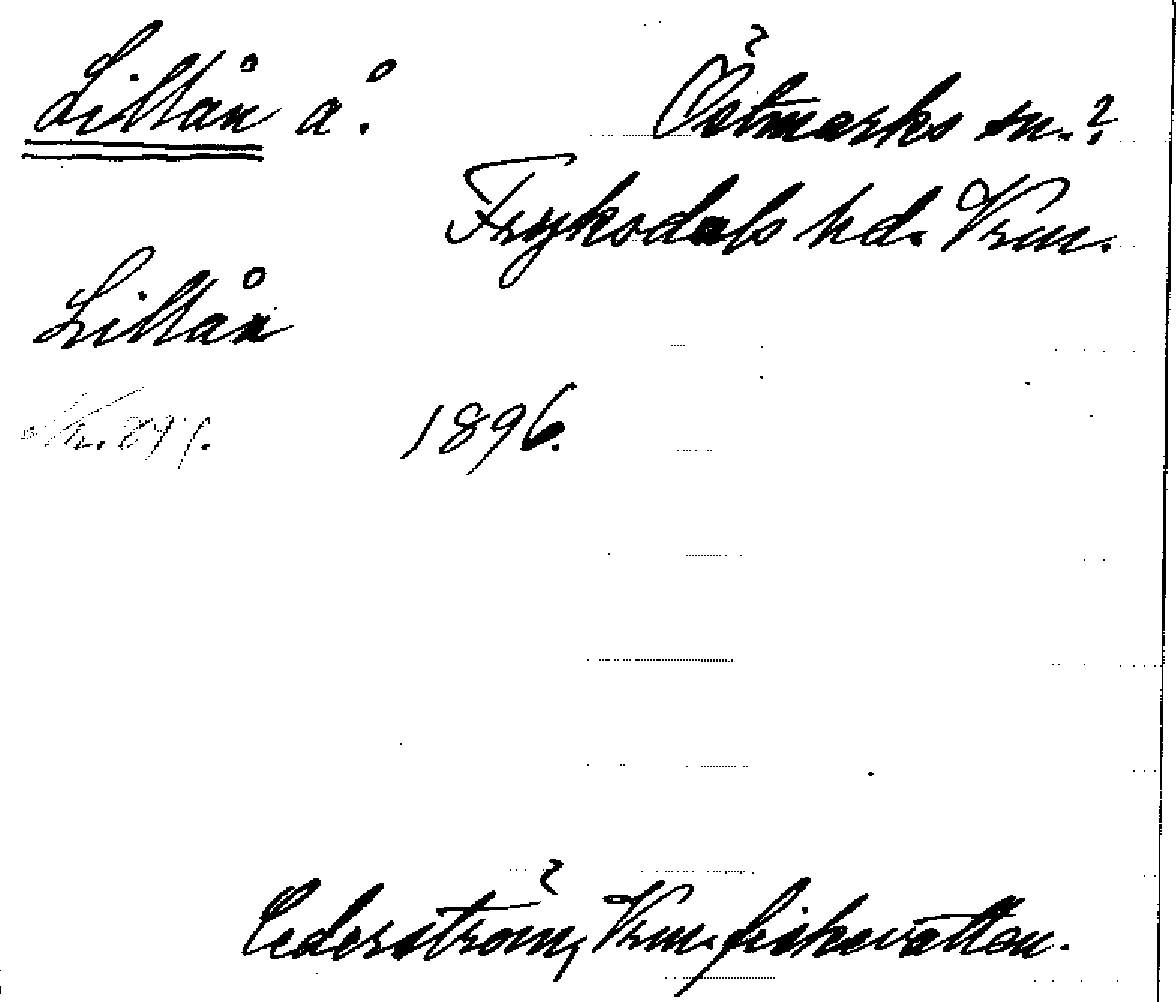 Lillån å.
Östmarks sn.?
Fryksdals hd. Vrm.
Lillån
1896.
Cederström, Vrm. fiskevatten.